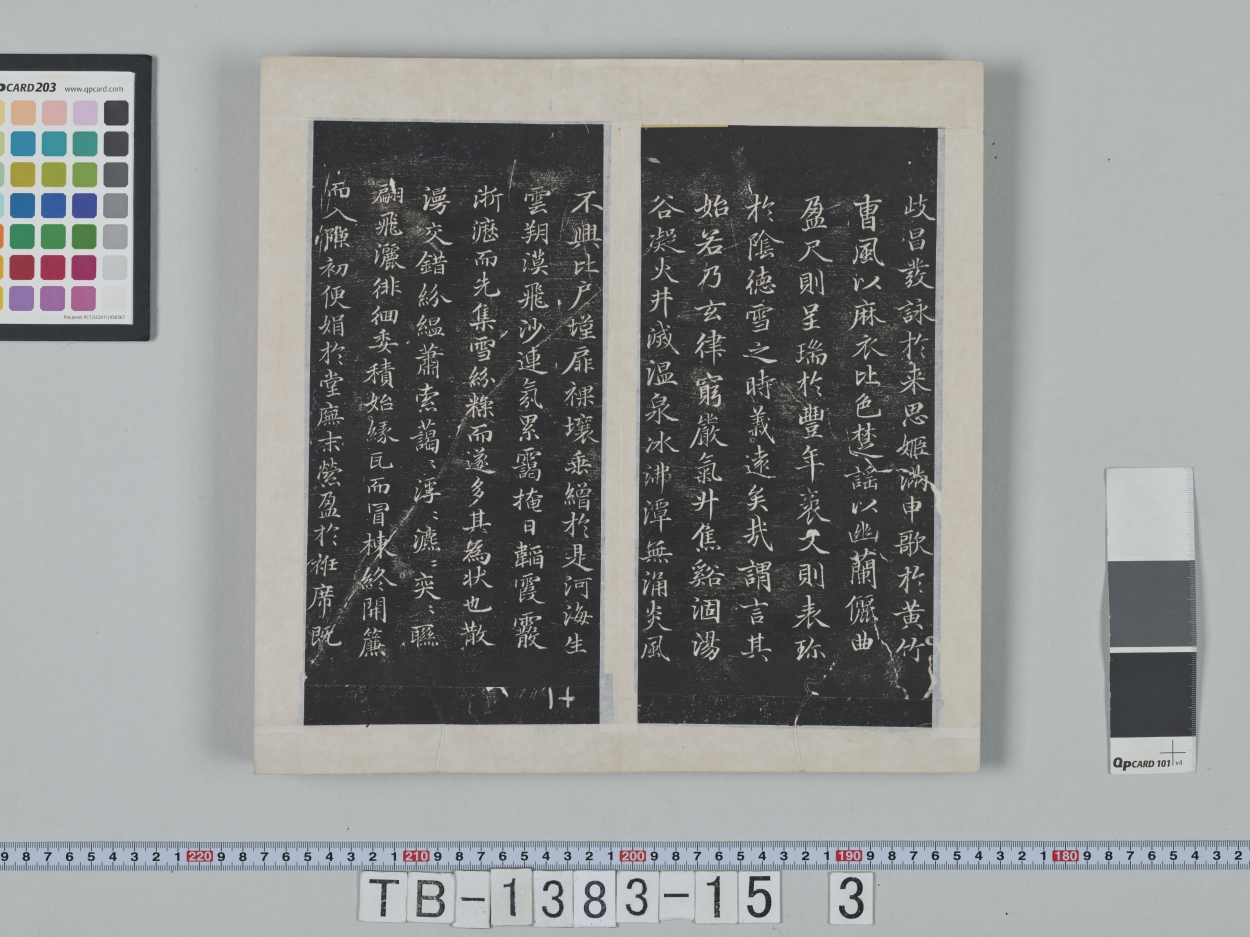 歧昌發詠於来思姬滿申歌於黄竹
曹風以麻衣比色楚謠以幽蘭儷曲
盈尺則呈瑞於豐年袤丈則表珎
於陰德雪之時義遠矣哉謂言其
始若乃玄律窮嚴氣升焦谿涸湯
谷凝火井滅温泉冰沸潭無涌炎風
不興北户墐扉裸壤垂繒於是河海生
雲朔漠飛沙連氛累靄掩日韜霞霰
淅瀝而先集雪紛糅而遂多其為状也散
漫交錯紛緼蕭索藹〻浮〻瀌〻奕〻聮
翩飛灑徘徊委積始縁瓦而冒棟終開簾
而入隙初便娟於堂廡末縈盈於帷席既
pCARD 203 www.qpcard.com
QpCARD 101 v4
9 8 7 6 5 4 3 2 1 220 9 8 7 6 5 4 3 2 1 210 9 8 7 6 5 4 3 2 1 200 9 8 7 6 5 4 3 2 1 190 9 8 7 6 5 4 3 2 1 180 9 8 7 6 5 4 3 2
TB-1383-15 3